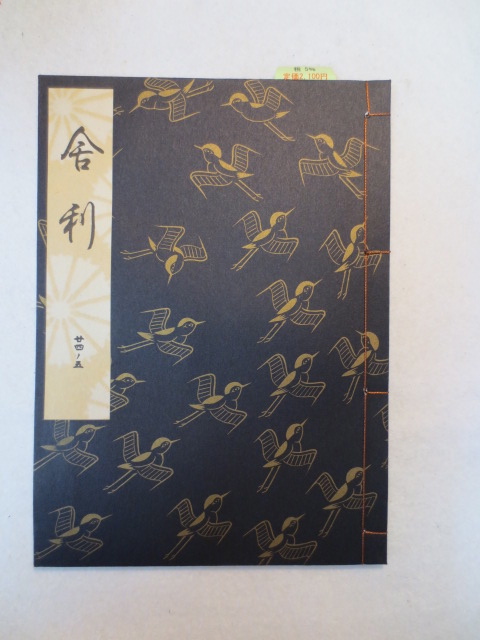 税 5%
定価2,100円
舎利
廿四ノ五